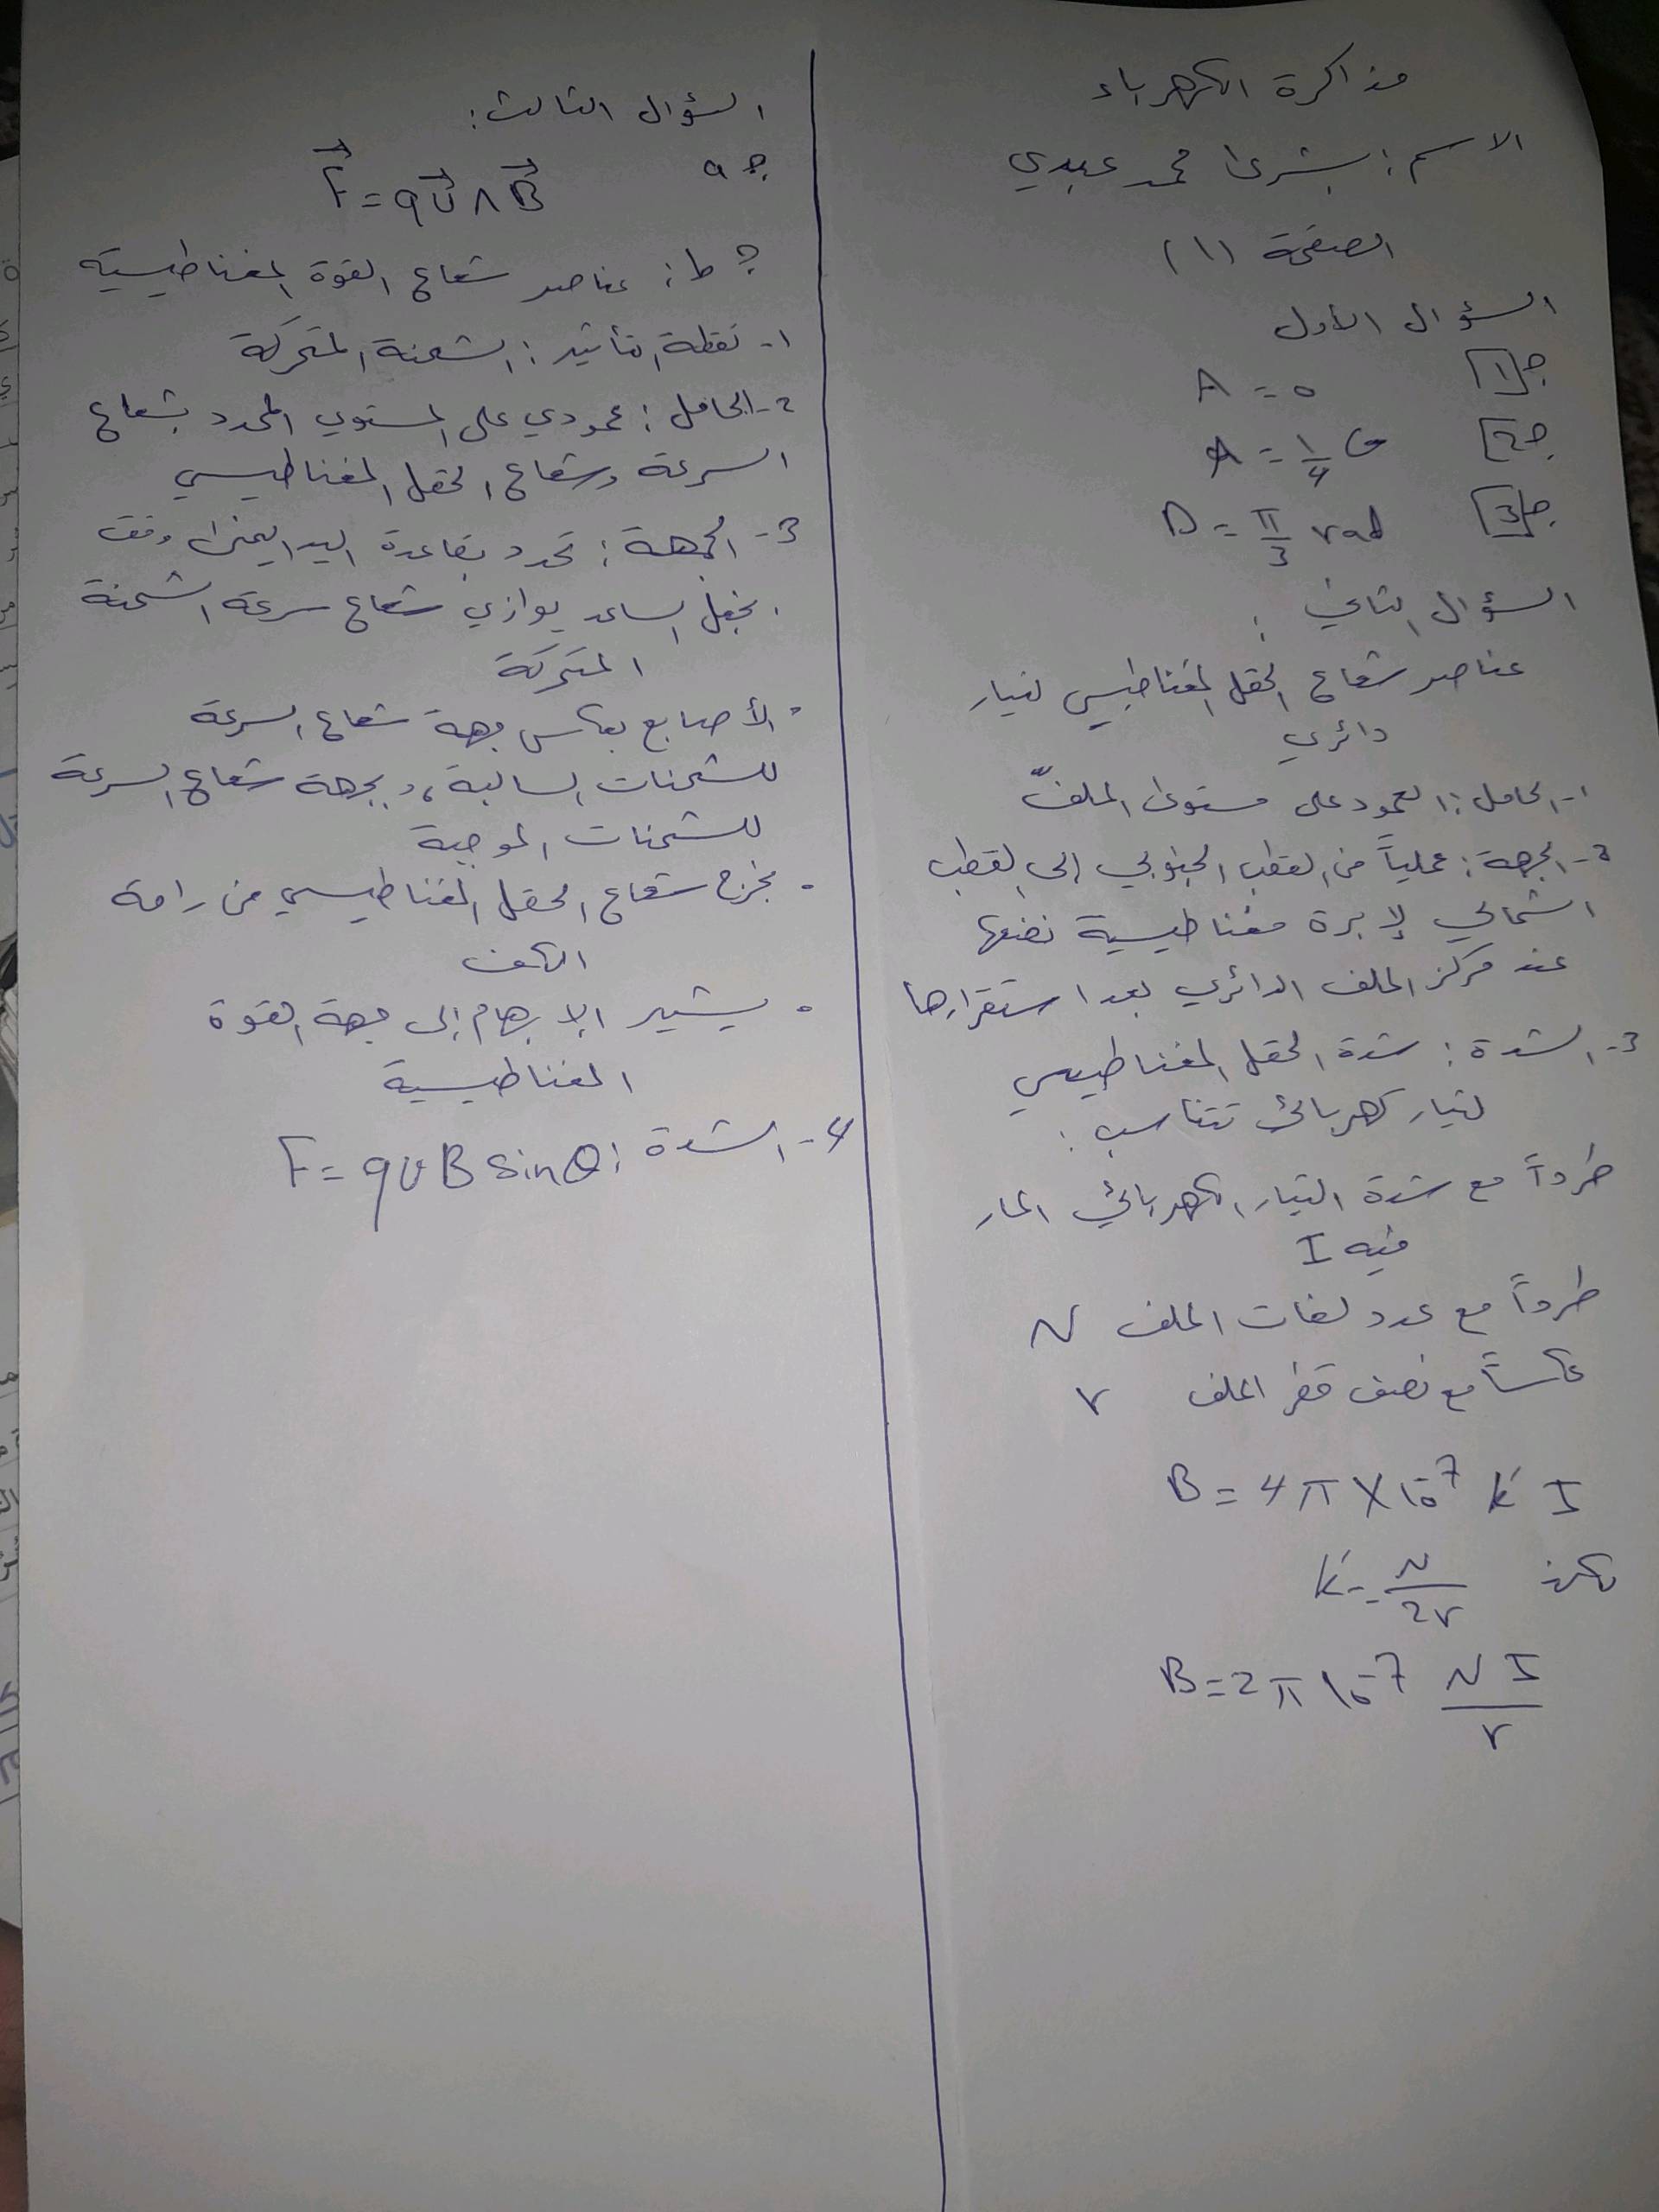 مذاكرة الكهرباء
الاسم: بشرى محمد عبدي
الصفحة (١)
السؤال الأول
ج1 A = 0
ج2 A = 1/4
ج3 D = π/3 rad
السؤال الثاني:
عناصر شعاع الحقل المغناطيسي لتيار
دائري
1- الحامل: العمود على مستوى الملفّ
2- الجهة: عملياً من القطب الجنوبي إلى القطب
الشمالي لإبرة مغناطيسية نضعها
عند مركز الملف الدائري بعد استقرارها
3- الشدة: شدة الحقل المغناطيسي
لتيار كهربائي تتناسب:
طرداً مع شدة التيار الكهربائي المار
فيه I
طرداً مع عدد لفات الملف N
عكساً مع نصف قطر الملف r
B = 4π × 10⁻⁷ k′ I
لكن k′ = N/2r
B = 2π 10⁻⁷ NI/r
السؤال الثالث:
ج a F⃗ = qv⃗ ∧ B⃗
ج b: عناصر شعاع القوة المغناطيسية
1- نقطة التأثير: الشحنة المتحركة
2- الحامل: عمودي على المستوي المحدد بشعاع
السرعة وشعاع الحقل المغناطيسي
3- الجهة: تحدد بقاعدة اليد اليمنى وفق
. نجعل الساعد يوازي شعاع سرعة الشحنة
المتحركة
. الأصابع بعكس جهة شعاع السرعة
للشحنات السالبة، وبجهة شعاع السرعة
للشحنات الموجبة
. يخرج شعاع الحقل المغناطيسي من راحة
الكف
. يشير الإبهام إلى جهة القوة
المغناطيسية
4- الشدة: F = qvB sinθ